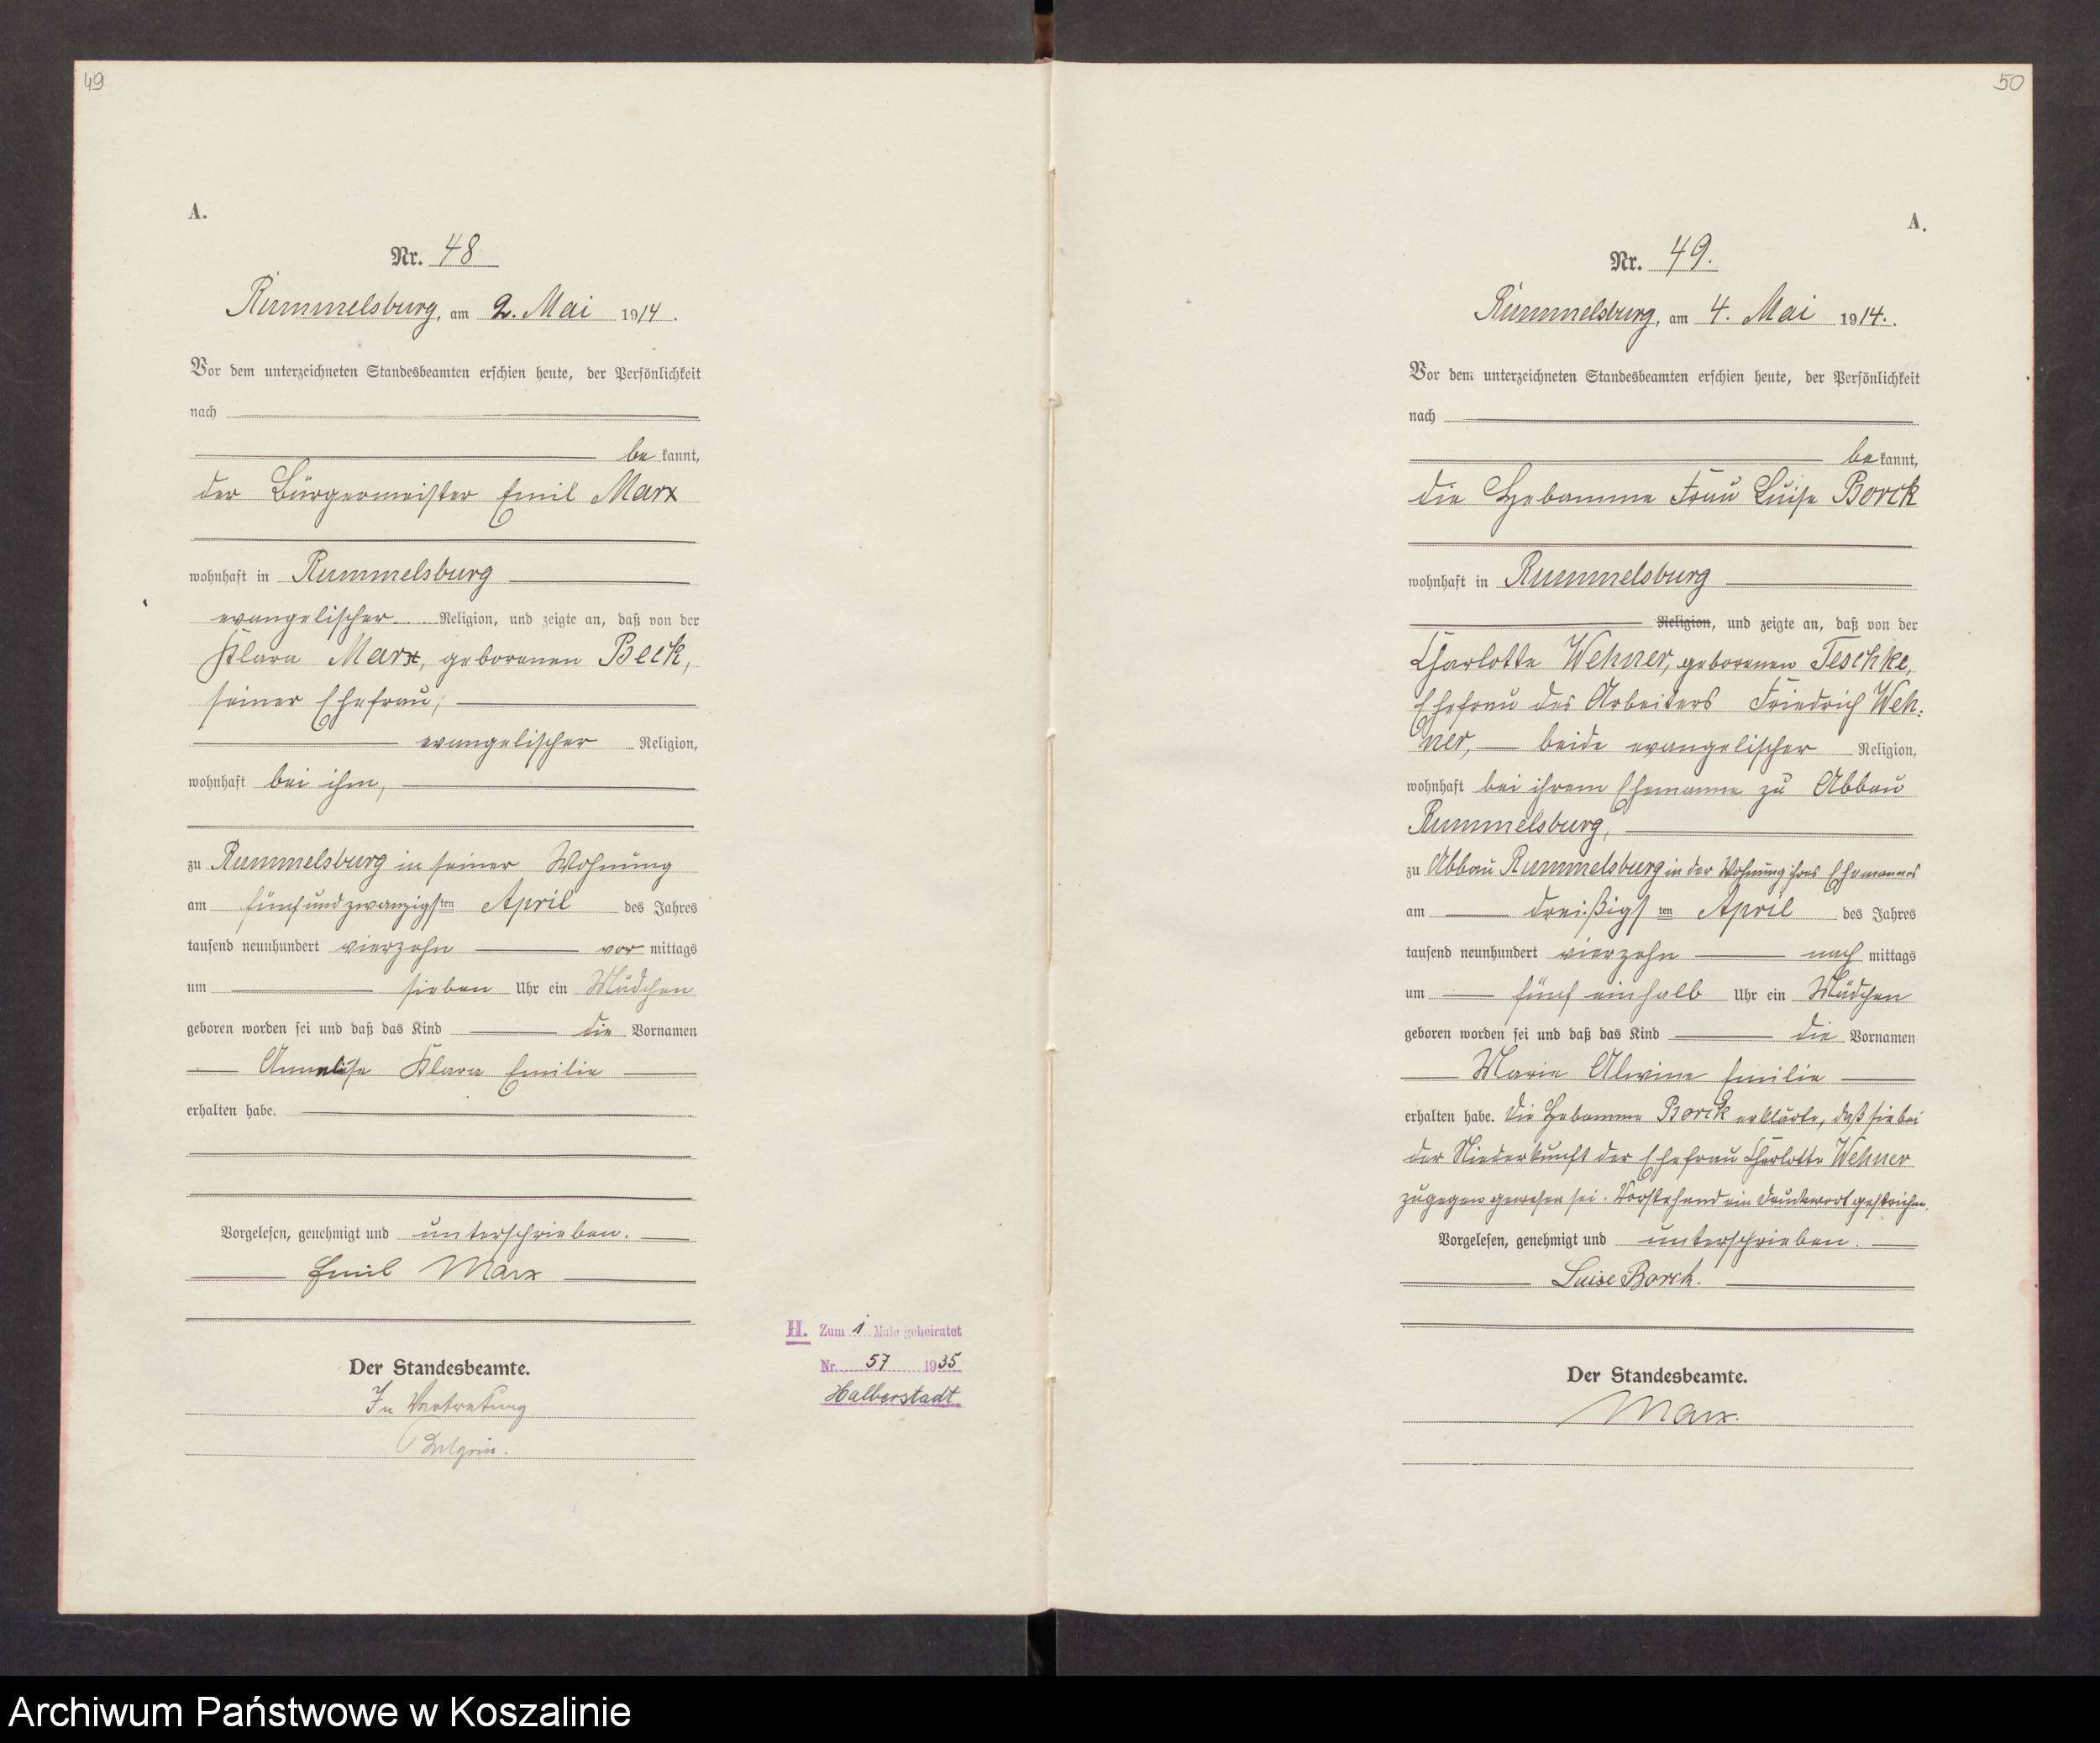 49
A.
Nr. 48
Rummelsburg, am 2. Mai 1914.
Vor dem unterzeichneten Standesbeamten erschien heute, der Persönlichkeit
nach
be kannt,
der Bürgermeister Emil Marx
wohnhaft in Rummelsburg
evangelischer Religion, und zeigte an, daß von der
Klara Marx, geborenen Beck,
seiner Ehefrau,
evangelischer Religion,
wohnhaft bei ihm,
zu Rummelsburg in seiner Wohnung
am fünfundzwanzigsten April des Jahres
tausend neunhundert vierzehn vor mittags
um sieben Uhr ein Mädchen
geboren worden sei und daß das Kind die Vornamen
Anneliese Klara Emilie
erhalten habe.
Vorgelesen, genehmigt und unterschrieben.
Emil Marx
Der Standesbeamte.
In Vertretung
H. Zum 1 Male geheiratet
Nr. 57 1935
Halberstadt
50
A.
Nr. 49.
Rummelsburg, am 4. Mai 1914.
Vor dem unterzeichneten Standesbeamten erschien heute, der Persönlichkeit
nach
be kannt,
die Hebamme Frau Luise Borck
wohnhaft in Rummelsburg
Religion, und zeigte an, daß von der
Charlotte Wehner, geborenen Teschke,
Ehefrau des Arbeiters Friedrich Weh:
ner, beide evangelischer Religion,
wohnhaft bei ihrem Ehemanne zu Abbau
Rummelsburg,
zu Abbau Rummelsburg in der Wohnung ihres Ehemannes
am dreißigsten April des Jahres
tausend neunhundert vierzehn nach mittags
um fünf einhalb Uhr ein Mädchen
geboren worden sei und daß das Kind die Vornamen
Marie Alwine Emilie
erhalten habe. Die Hebamme Borck erklärte, daß sie bei
der Niederkunft der Ehefrau Charlotte Wehner
zugegen gewesen sei. Vorstehend ein Druckwort gestrichen.
Vorgelesen, genehmigt und unterschrieben.
Luise Borck.
Der Standesbeamte.
Marx.
Archiwum Państwowe w Koszalinie